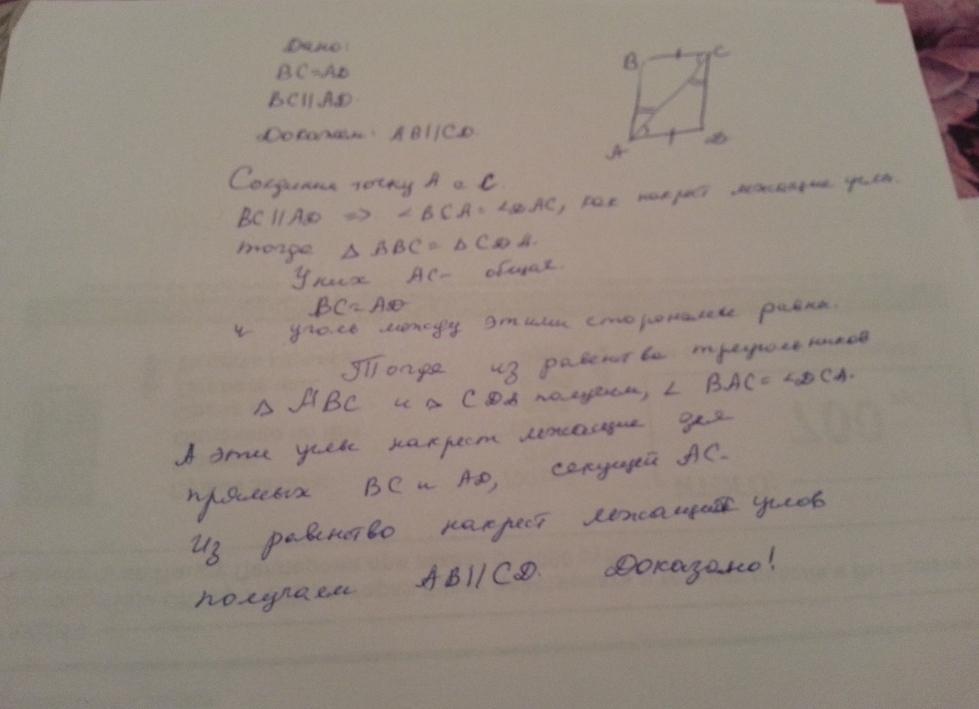 Дано:
BC=AD
BC||AD
Докажем: AB||CD
B C
A D
Соединим точку A с C.
BC||AD => ∠BCA=∠DAC, как накрест лежащие углы.
тогда △ABC=△CDA.
У них AC- общая.
BC=AD
и уголы между этими сторонами равны.
Тогда из равенства треугольников
△ABC и △CDA получаем, ∠BAC=∠DCA.
А эти углы накрест лежащие для
прямых BC и AD, секущей AC-
Из равенство накрест лежащий углов
получаем AB||CD. Доказано!